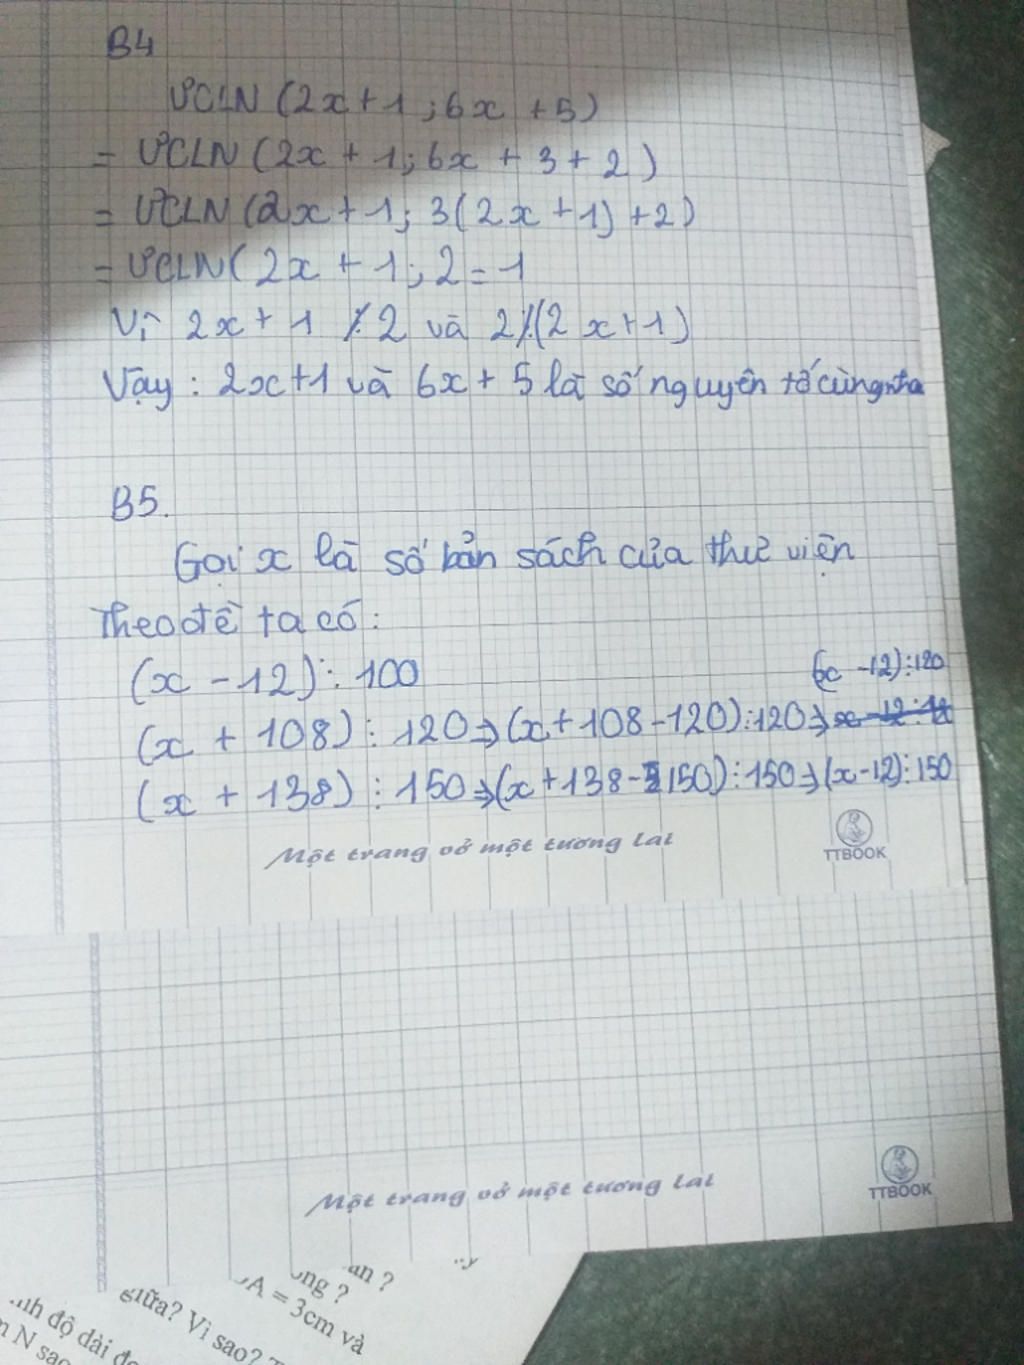 B4
ƯCLN (2x + 1 ; 6x + 5)
= ƯCLN (2x + 1; 6x + 3 + 2)
= ƯCLN (2x + 1; 3(2x + 1) + 2)
= ƯCLN( 2x + 1 ; 2 = 1
Vì 2x + 1 ⋮̸ 2 và 2 ⋮̸ (2x+1)
Vậy : 2x+1 và 6x + 5 là số nguyên tố cùng nha
B5.
Gọi x là số bản sách của thư viện
Theo đề ta có :
(x - 12) ⋮ 100
(x - 12) ⋮ 120
(x + 108) ⋮ 120 => (x + 108 - 120) ⋮ 120 =>
(x + 138) ⋮ 150 => (x + 138 - 150) ⋮ 150 => (x - 12) ⋮ 150
Một trang vở một tương lai
TTBOOK
Một trang vở một tương lai
TTBOOK
an ?
ong ?
A = 3cm và
giữa? Vì sao?
độ dài
N sao